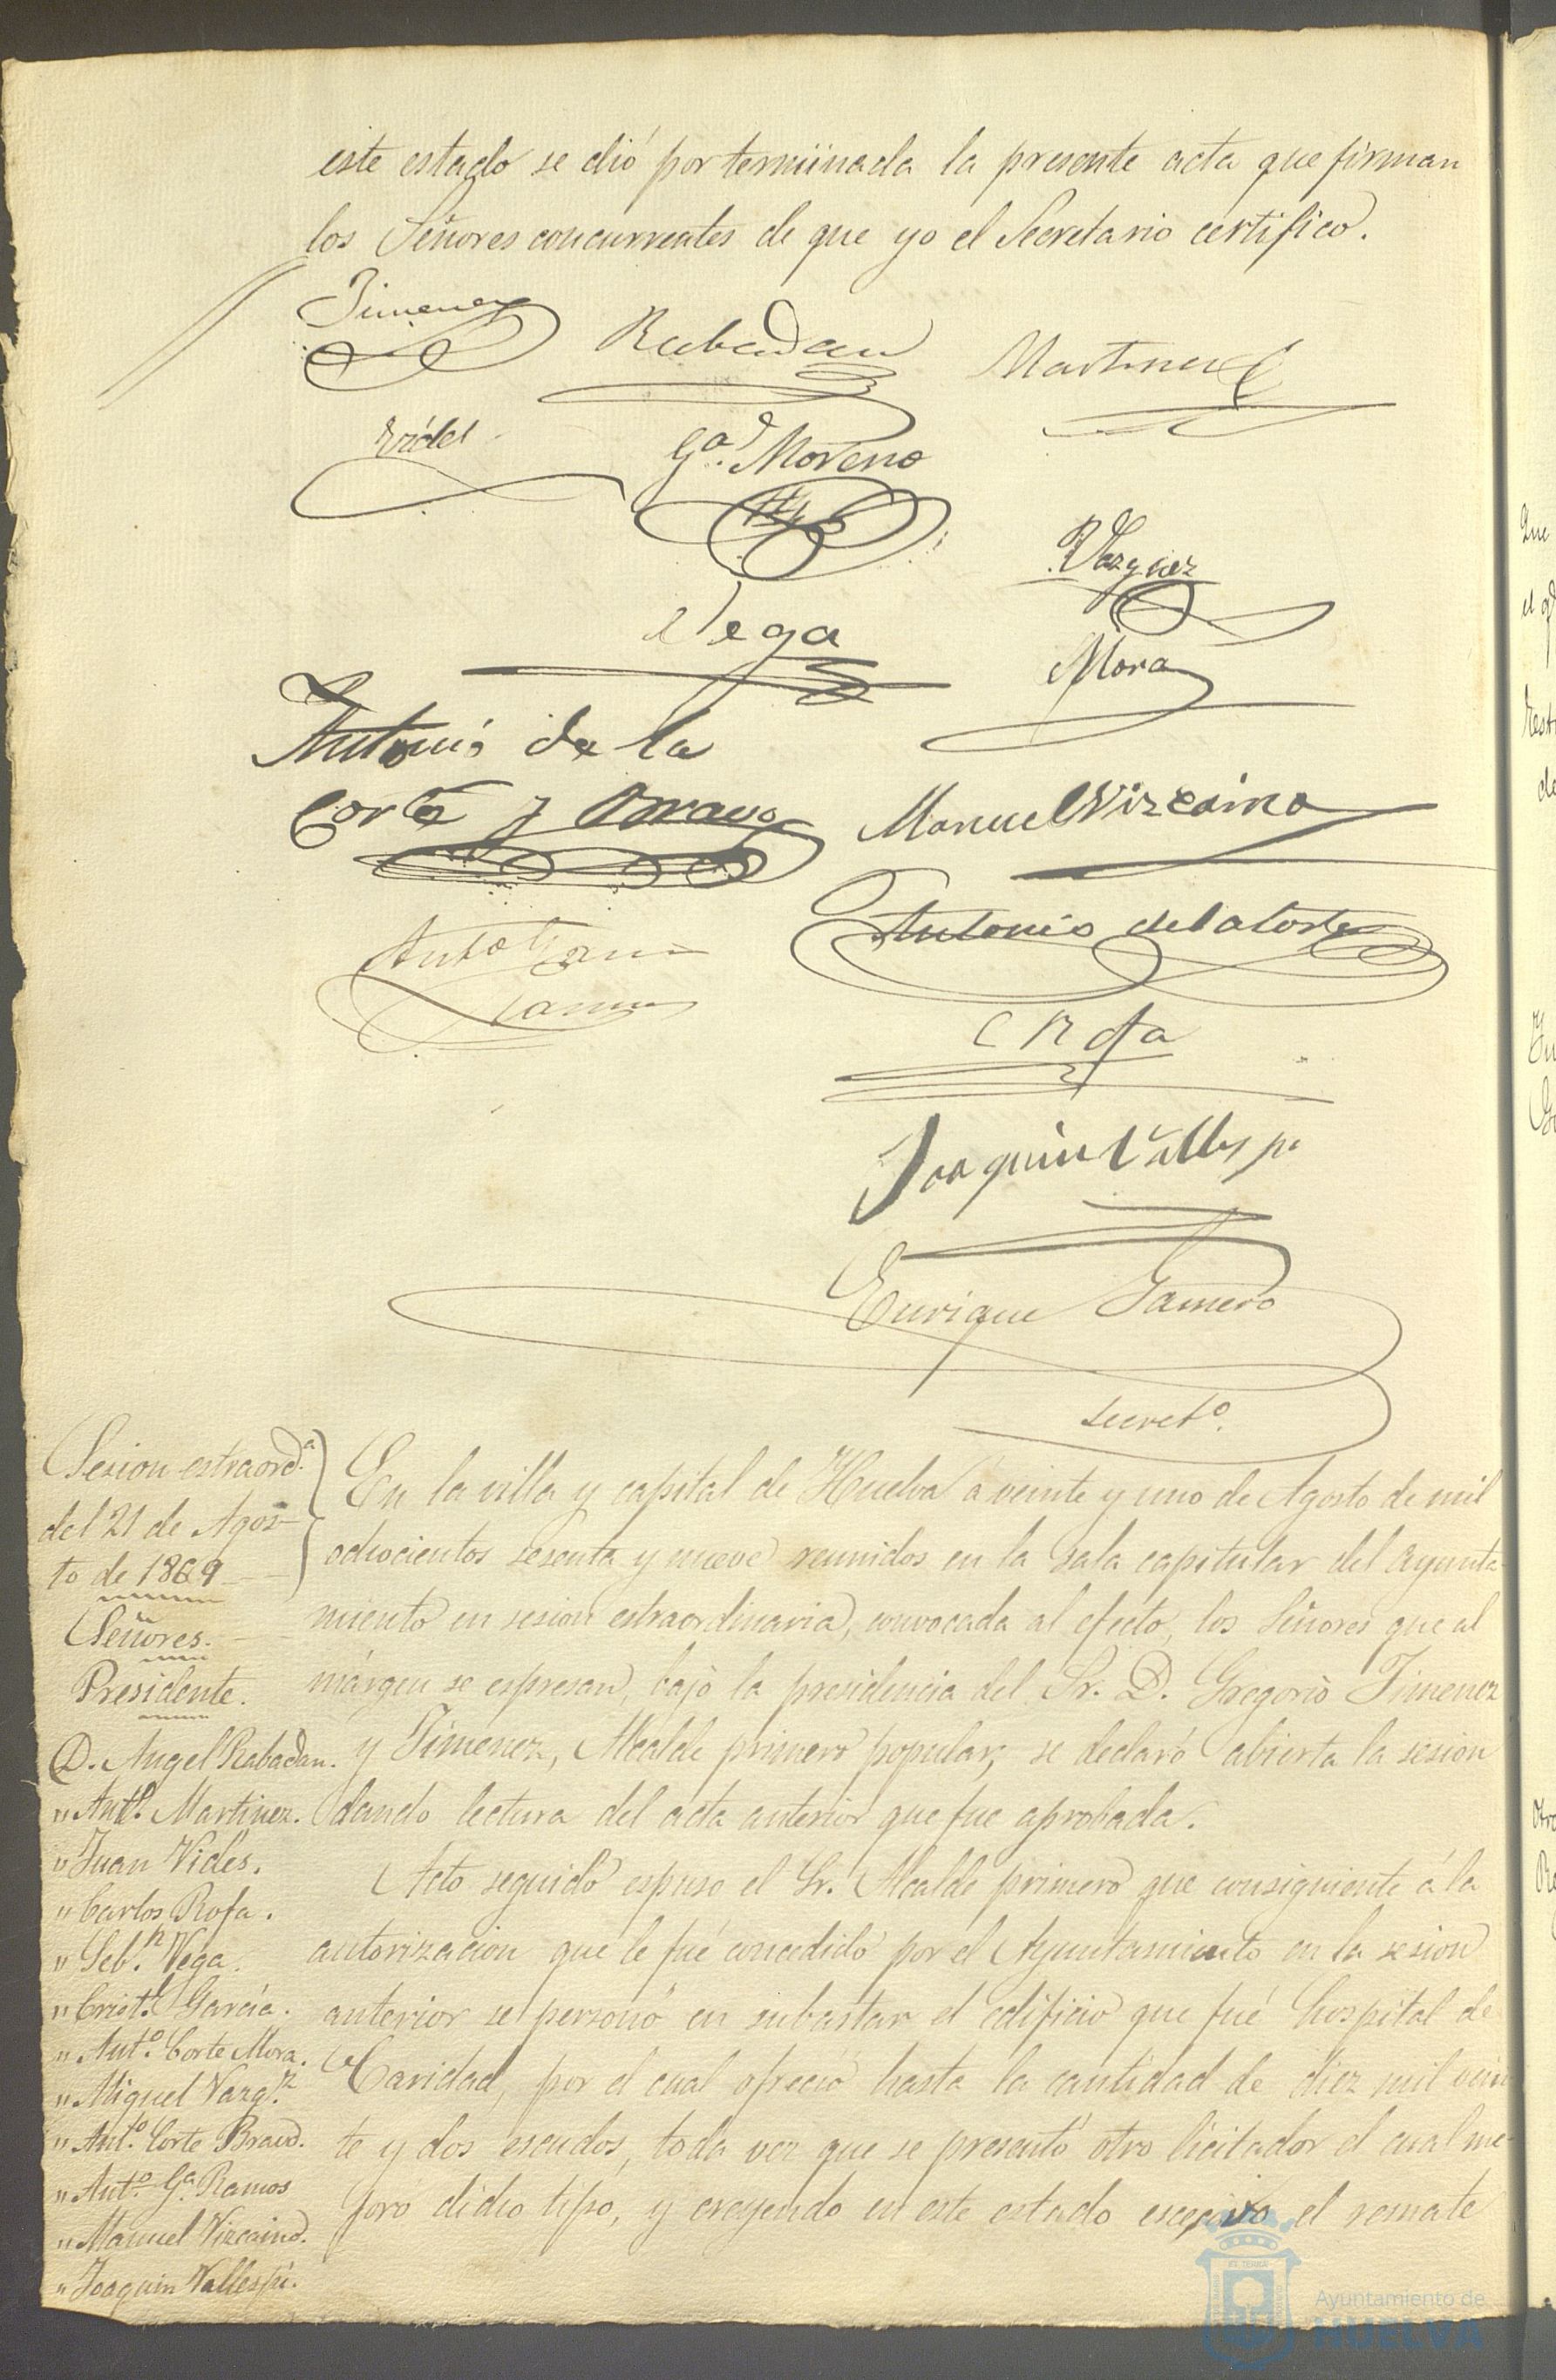 este estado se dió por terminada la presente acta que firman
los Señores concurrentes de que yo el Secretario certifico.
Jimenez
Rabadan
Martinez
Vides
Gª Moreno
Vazquez
Vega
Mora
Antonio de la
Corte y Bravo
Manuel Vizcaino
Antº Garcia
Ramos
Antonio de la Corte
C Rofa
Joaquin Vallespi
Enrique Gamero
Secretº.
Sesion estraordª
del 21 de Agos-
to de 1869
Señores.
Presidente.
D. Angel Rabadan.
" Antº. Martinez.
" Juan Vides.
" Carlos Rofa.
" Sebn. Vega.
" Cristl. García.
" Antº. Corte Mora.
" Miguel Vazqz.
" Antº. Corte Bravo.
" Antº. Gª. Ramos
" Manuel Vizcaino.
" Joaquin Vallespi.
En la villa y capital de Huelva á veinte y uno de Agosto de mil
ochocientos sesenta y nueve reunidos en la sala capitular del Ayunta-
miento en sesion estraordinaria, convocada al efecto, los Señores que al
márgen se espresan, bajo la presidencia del Sr. D. Gregorio Jimenez
y Jimenez, Alcalde primero popular, se declaró abierta la sesion
dando lectura del acta anterior que fue aprobada.
Acto seguido espuso el Sr. Alcalde primero que consiguiente á la
autorizacion que le fué concedido por el Ayuntamiento en la sesion
anterior se personó en subastar el edificio que fué hospital de
Caridad, por el cual ofreció hasta la cantidad de diez mil vein
te y dos escudos, toda vez que se presentó otro licitador el cual me-
joró dicho tipo, y creyendo en este estado escesivo el remate
Ayuntamiento de
HUELVA